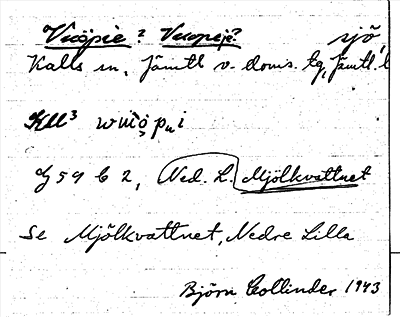 Vuöpie? Vuopeje? sjö,
Kalls sn, Jämtl v. doms. tg, Jämtl. l
KM³
59 C 2, Ned. L. Mjölkvattnet
Se Mjölkvattnet, Nedre Lilla
Björn Collinder 1943